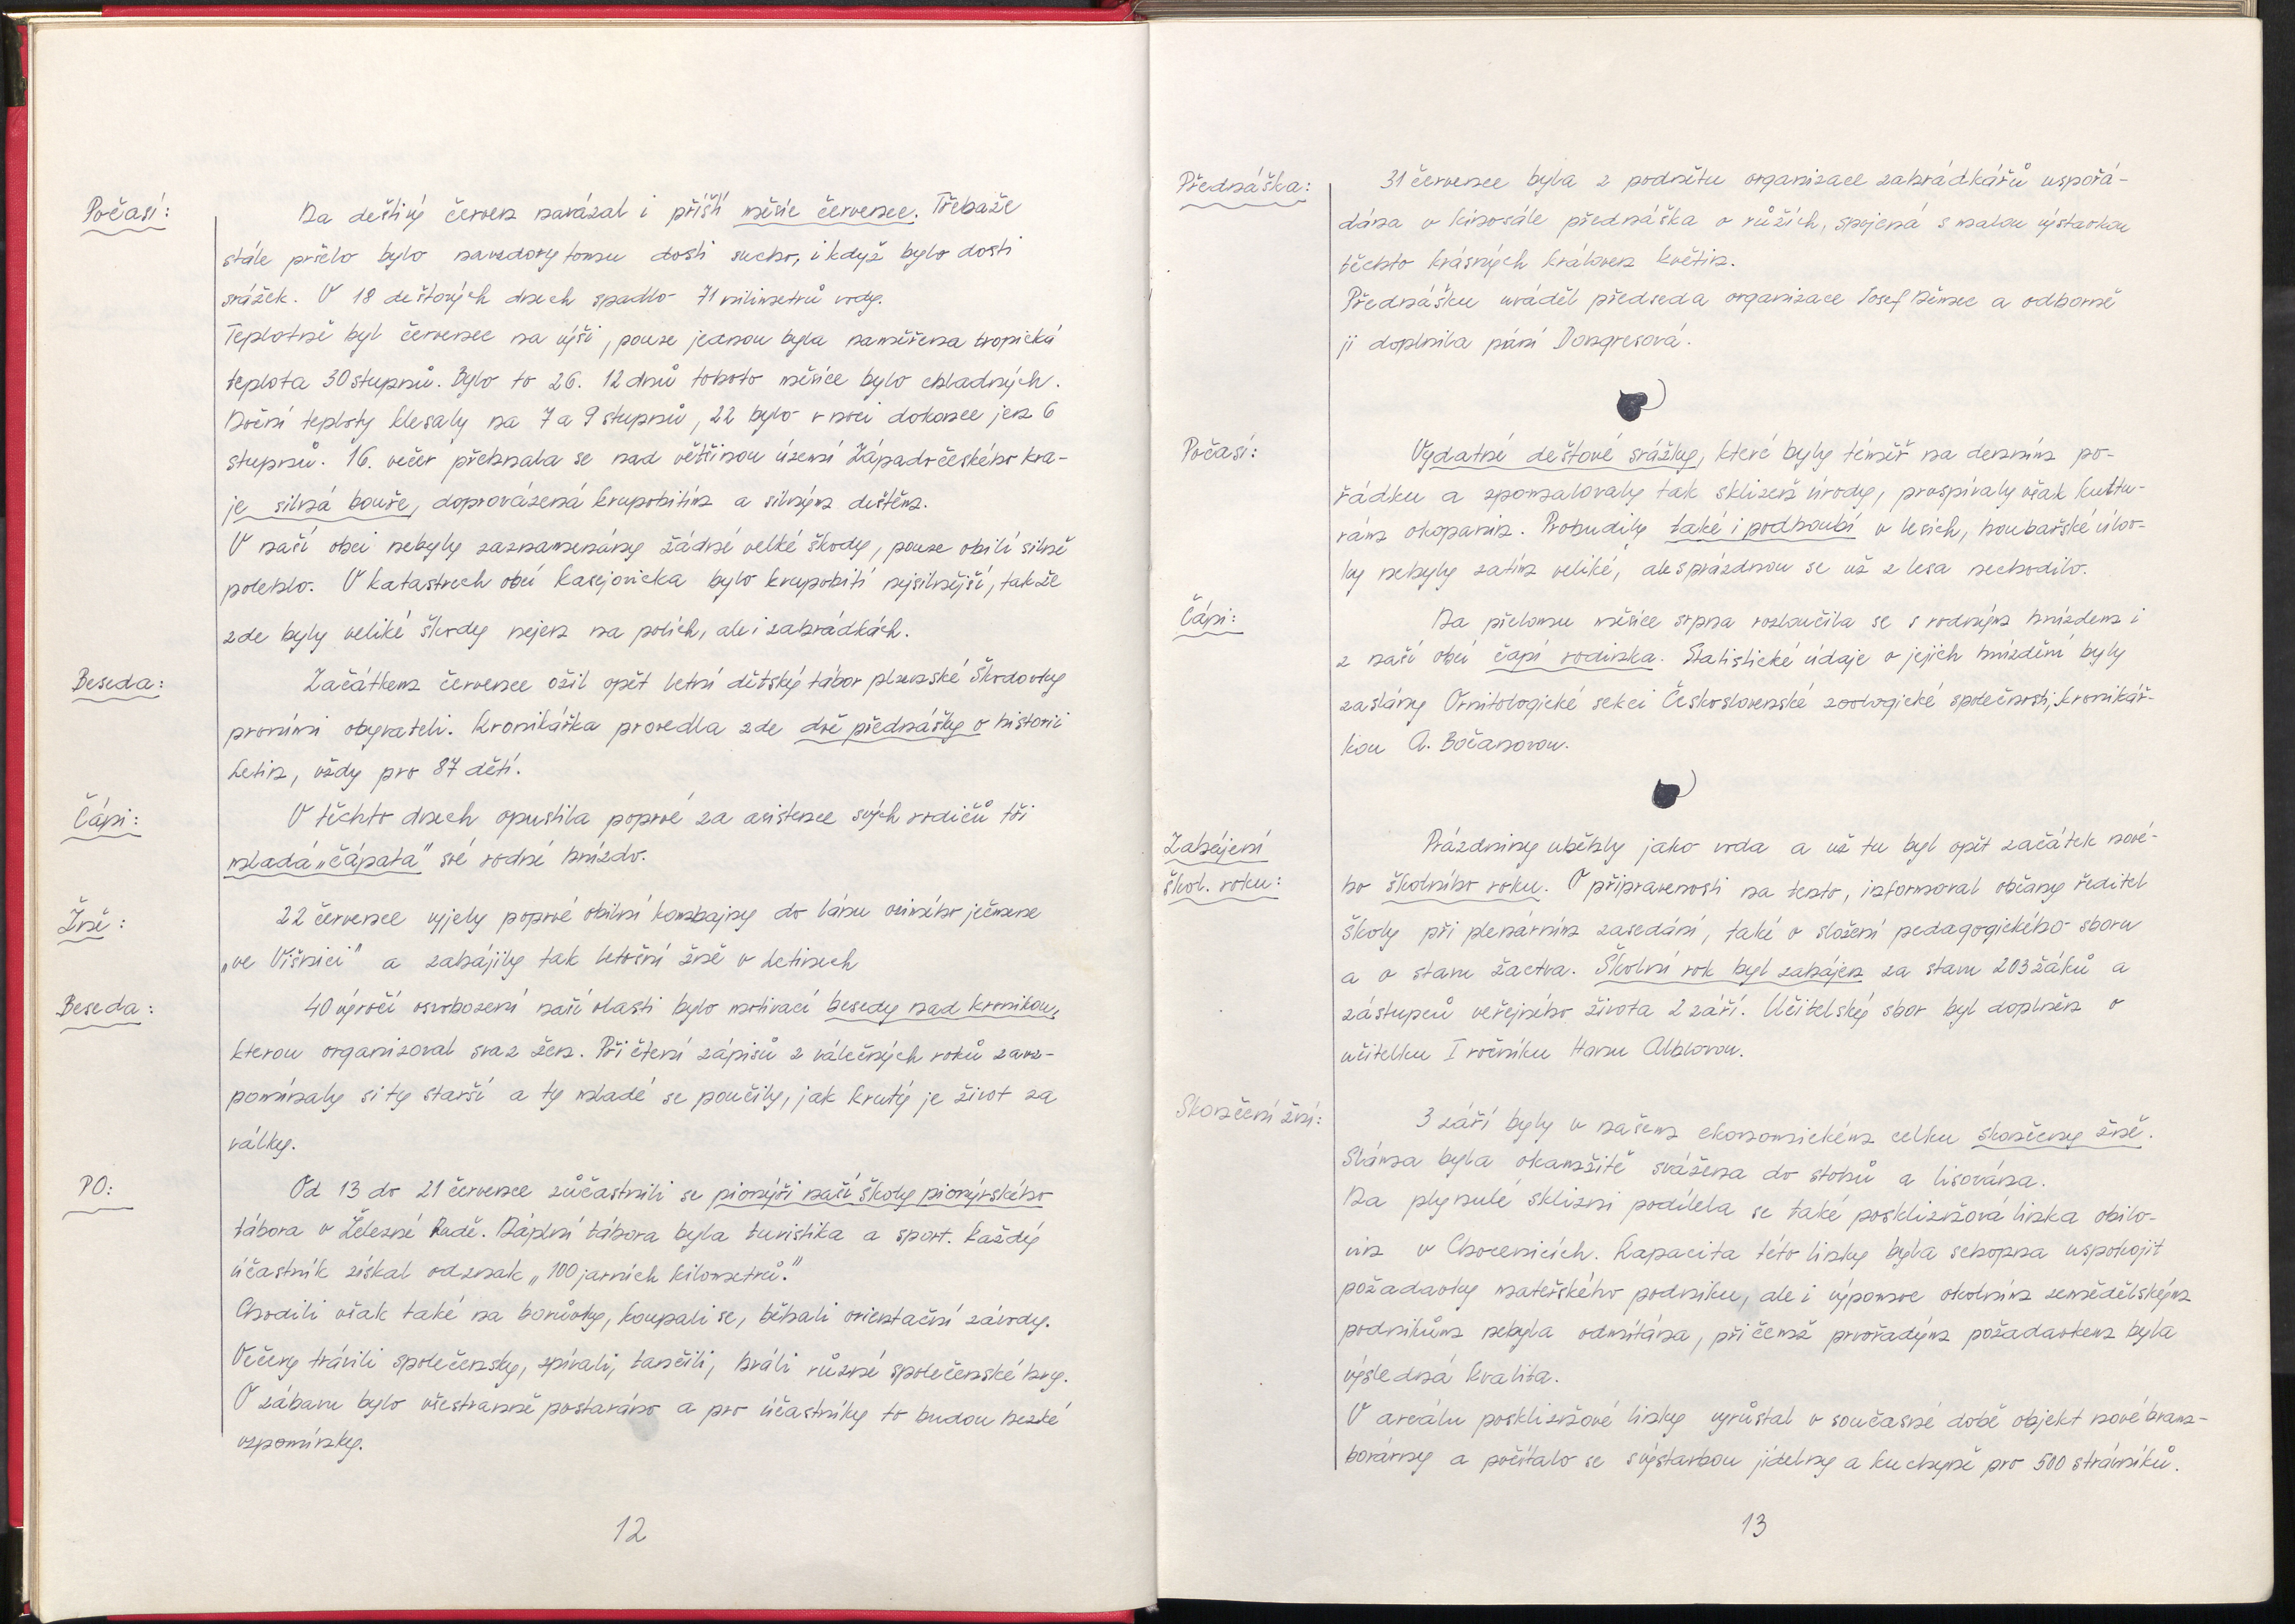 Počasí:
Na deštivý červen navázal i příští měsíc červenec. Třebaže
stále pršelo bylo navzdory tomu dosti sucho, i když bylo dosti
srážek. V 18 deštových dnech spadlo 71 milimetrů vody.
Teplotně byl červenec na výši, pouze jednou byla naměřena tropická
teplota 30 stupňů. Bylo to 26. 12 dnů tohoto měsíce bylo chladných.
Noční teploty klesaly na 7 a 9 stupňů, 22 bylo v noci dokonce jen 6
stupňů. 16. večer přehnala se nad většinou území Západočeského kra-
je silná bouře, doprovázená krupobitím a silným deštěm.
V naší obci nebyly zaznamenány žádné velké škody, pouze obilí silně
polehlo. V katastrech obcí Kasejovicka bylo krupobití nejsilnější, takže
zde byly veliké škody nejen na polích, ale i zahrádkách.
Beseda:
Začátkem července ožil opět letní dětský tábor plzeňské Škodovky
prvními obyvateli. Kronikářka provedla zde dvě přednášky o historii
Letin, vždy pro 87 dětí.
Čápi:
V těchto dnech opustila poprvé za asistence svých rodičů tři
mladá „čápata" své rodné hnízdo.
Žně:
22 července vyjely poprvé obilní kombajny do lánu ozimého ječmene
„ve Višnici" a zahájily tak letošní žně v Letinech
Beseda:
40 výročí osvobození naší vlasti bylo motivací besedy nad kronikou,
kterou organizoval svaz žen. Při čtení zápisů z válečných roků zavz-
pomínaly si ty starší a ty mladé se poučily, jak krutý je život za
války.
PO:
Od 13 do 21 července zúčastnili se pionýři naší školy pionýrského
tábora v Železné Rudě. Náplní tábora byla turistika a sport. Každý
účastník získal odznak „100 jarních kilometrů."
Chodili však také na borůvky, koupali se, běhali orientační závody.
Večery trávili společensky, zpívali, tančili, hráli různé společenské hry.
O zábavu bylo všestranně postaráno a pro účastníky to budou hezké
vzpomínky.
12
Přednáška:
31 července byla z podnětu organizace zahrádkářů uspořá-
dána v kinosále přednáška o růžích, spojená s malou výstavkou
těchto krásných královen květin.
Přednášku uváděl předseda organizace Josef Němec a odborně
ji doplnila paní Dongresová.
Počasí:
Vydatné deštové srážky, které byly téměř na denním po-
řádku a zpomalovaly tak sklizeň úrody, prospívaly však kultu-
rám okopanin. Probudily také i podhoubí v lesích, houbařské úlov-
ky nebyly zatím veliké, ale s prázdnou se už z lesa nechodilo.
Čápi:
Na přelomu měsíce srpna rozloučila se s rodným hnízdem i
z naší obcí čapí rodinka. Statistické údaje o jejich hnízdění byly
zaslány Ornitologické sekci Československé zoologické společnosti, kronikář-
kou A. Bočanovou.
Zahájení
škol. roku:
Prázdniny uběhly jako voda a už tu byl opět začátek nové-
ho školního roku. O připravenosti na tento, informoval občany ředitel
školy při plenárním zasedání, také o složení pedagogického sboru
a o stavu žactva. Školní rok byl zahájen za stavu 203 žáků a
zástupců veřejného života 2 září. Učitelský sbor byl doplněn o
učitelku I ročníku Hanu Alblovou.
Skončení žní:
3 září byly v našem ekonomickém celku skončeny žně.
Sláma byla okamžitě svážena do stohů a lisována.
Na plynulé sklizni podílela se také posklizňová linka obilo-
vin v Chocenicích. Kapacita této linky byla schopna uspokojit
požadavky mateřského podniku, ale i výpomoc okolním zemědělským
podnikům nebyla odmítána, při čemž prvořadým požadavkem byla
výsledná kvalita.
V areálu posklizňové linky vyrůstal v současné době objekt nové bram-
borárny a počítalo se s výstavbou jídelny a kuchyně pro 500 strávníků.
13